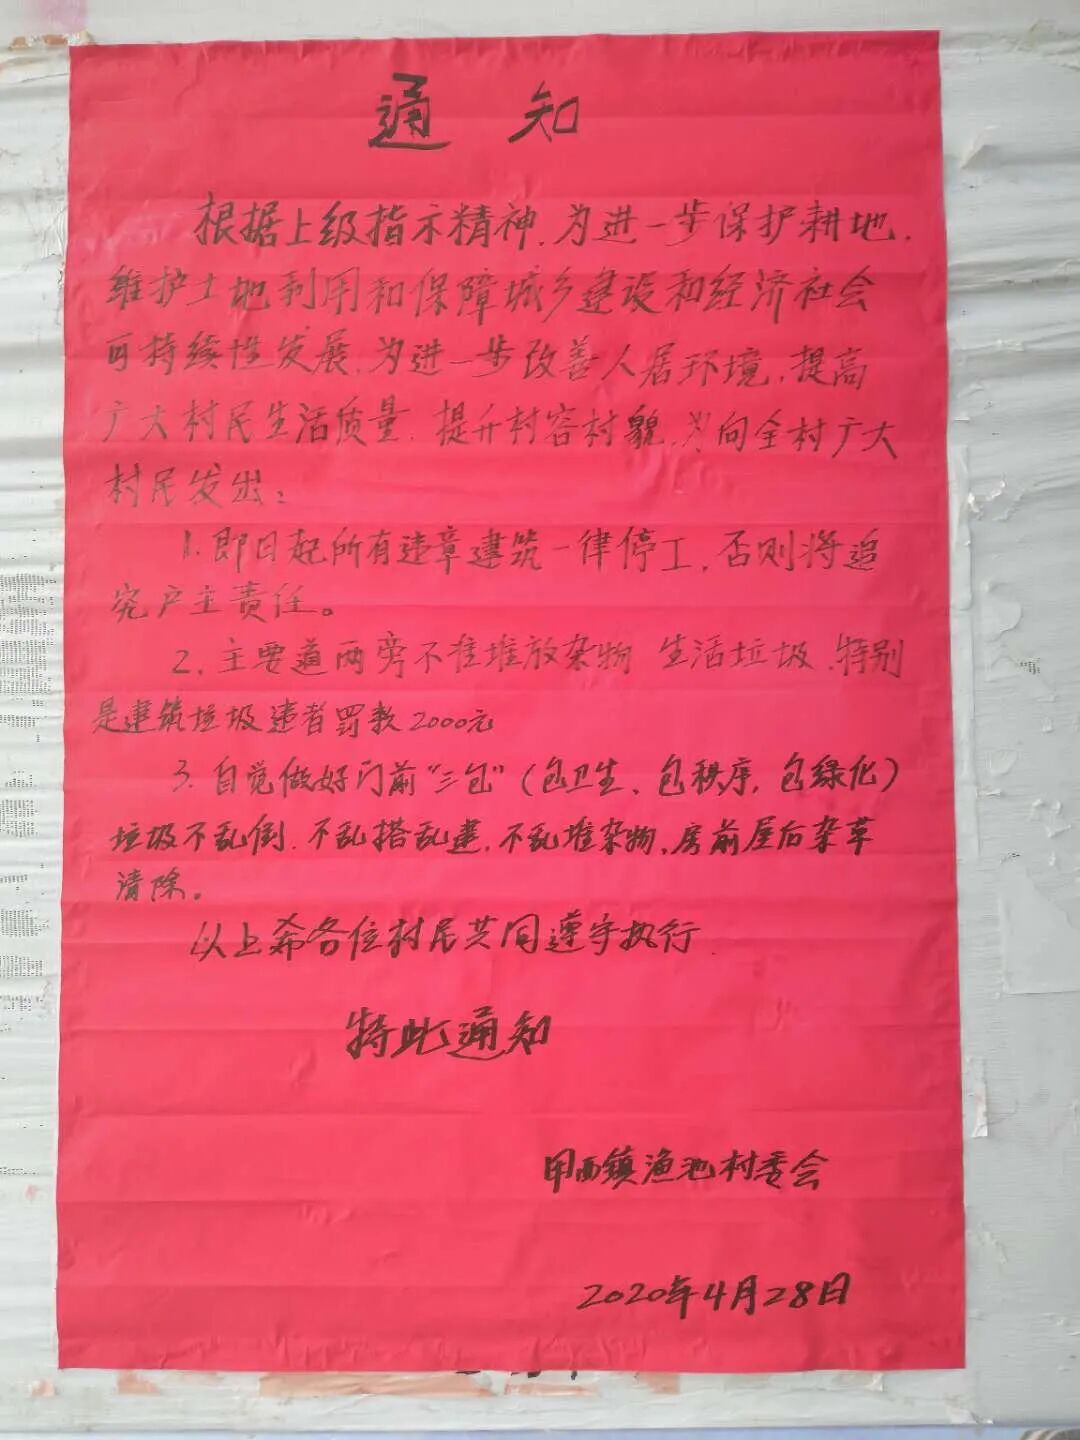 通知
根据上级指示精神,为进一步保护耕地,
维护土地利用和保障城乡建设和经济社会
可持续性发展,为进一步改善人居环境,提高
广大村民生活质量,提升村容村貌,向全村广大
村民发出:
1.即日起所有违章建筑一律停工,否则将追
究户主责任。
2.主要道两旁不准堆放杂物 生活垃圾,特别
是建筑垃圾违者罚款2000元
3.自觉做好门前“三包”(包卫生、包秩序,包绿化)
垃圾不乱倒.不乱搭乱建,不乱堆杂物、房前屋后杂草
清除。
以上希各位村民共同遵守执行.
特此通知
甲西镇渔池村委会
2020年4月28日